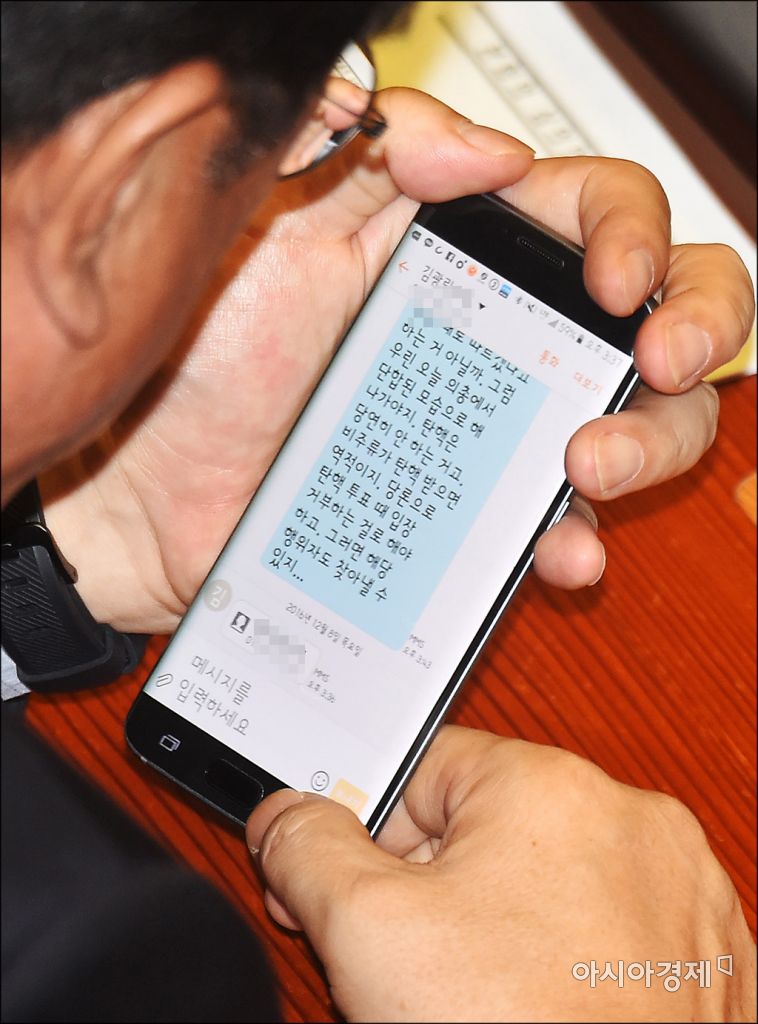 59% 오후 3:37
김광림
통화
더보기
하는 거 아닐까. 그럼
우리 오늘 의총에서
단합된 모습으로 해
나가야지. 탄핵은
당연히 안 하는 거고.
비주류가 탄핵 받으면
역적이지. 당론으로
탄핵 투표 때 입장
거부하는 걸로 해야
하고. 그러면 해당
행위자도 찾아낼 수
있지...
MMS
오후 3:43
2016년 12월 8일 목요일
김
MMS
오후 3:36
메시지를
입력하세요
아시아경제